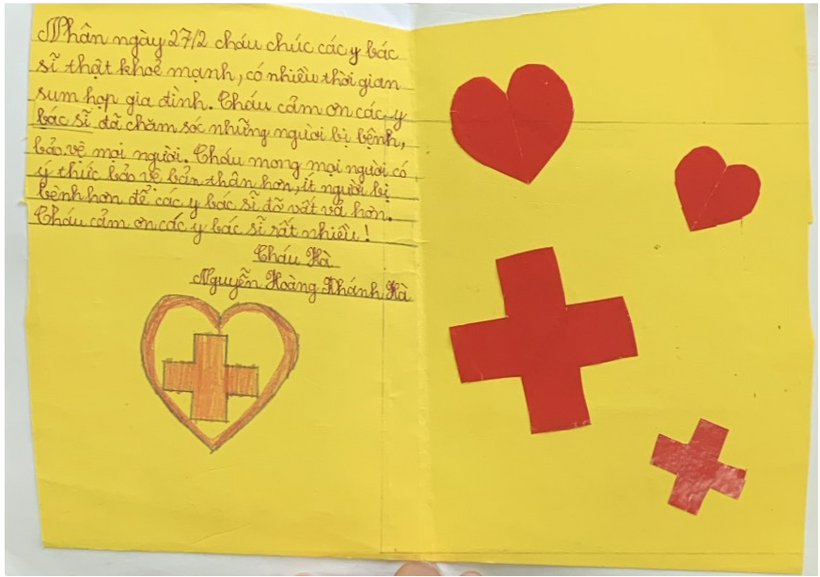 Nhân ngày 27/2 cháu chúc các y bác
sĩ thật khoẻ mạnh, có nhiều thời gian
sum họp gia đình. Cháu cảm ơn các y
bác sĩ đã chăm sóc những người bị bệnh,
bảo vệ mọi người. Cháu mong mọi người có
ý thức bảo vệ bản thân hơn, ít người bị
bệnh hơn để các y bác sĩ đỡ vất vả hơn.
Cháu cảm ơn các y bác sĩ rất nhiều!
Cháu Hà
Nguyễn Hoàng Khánh Hà